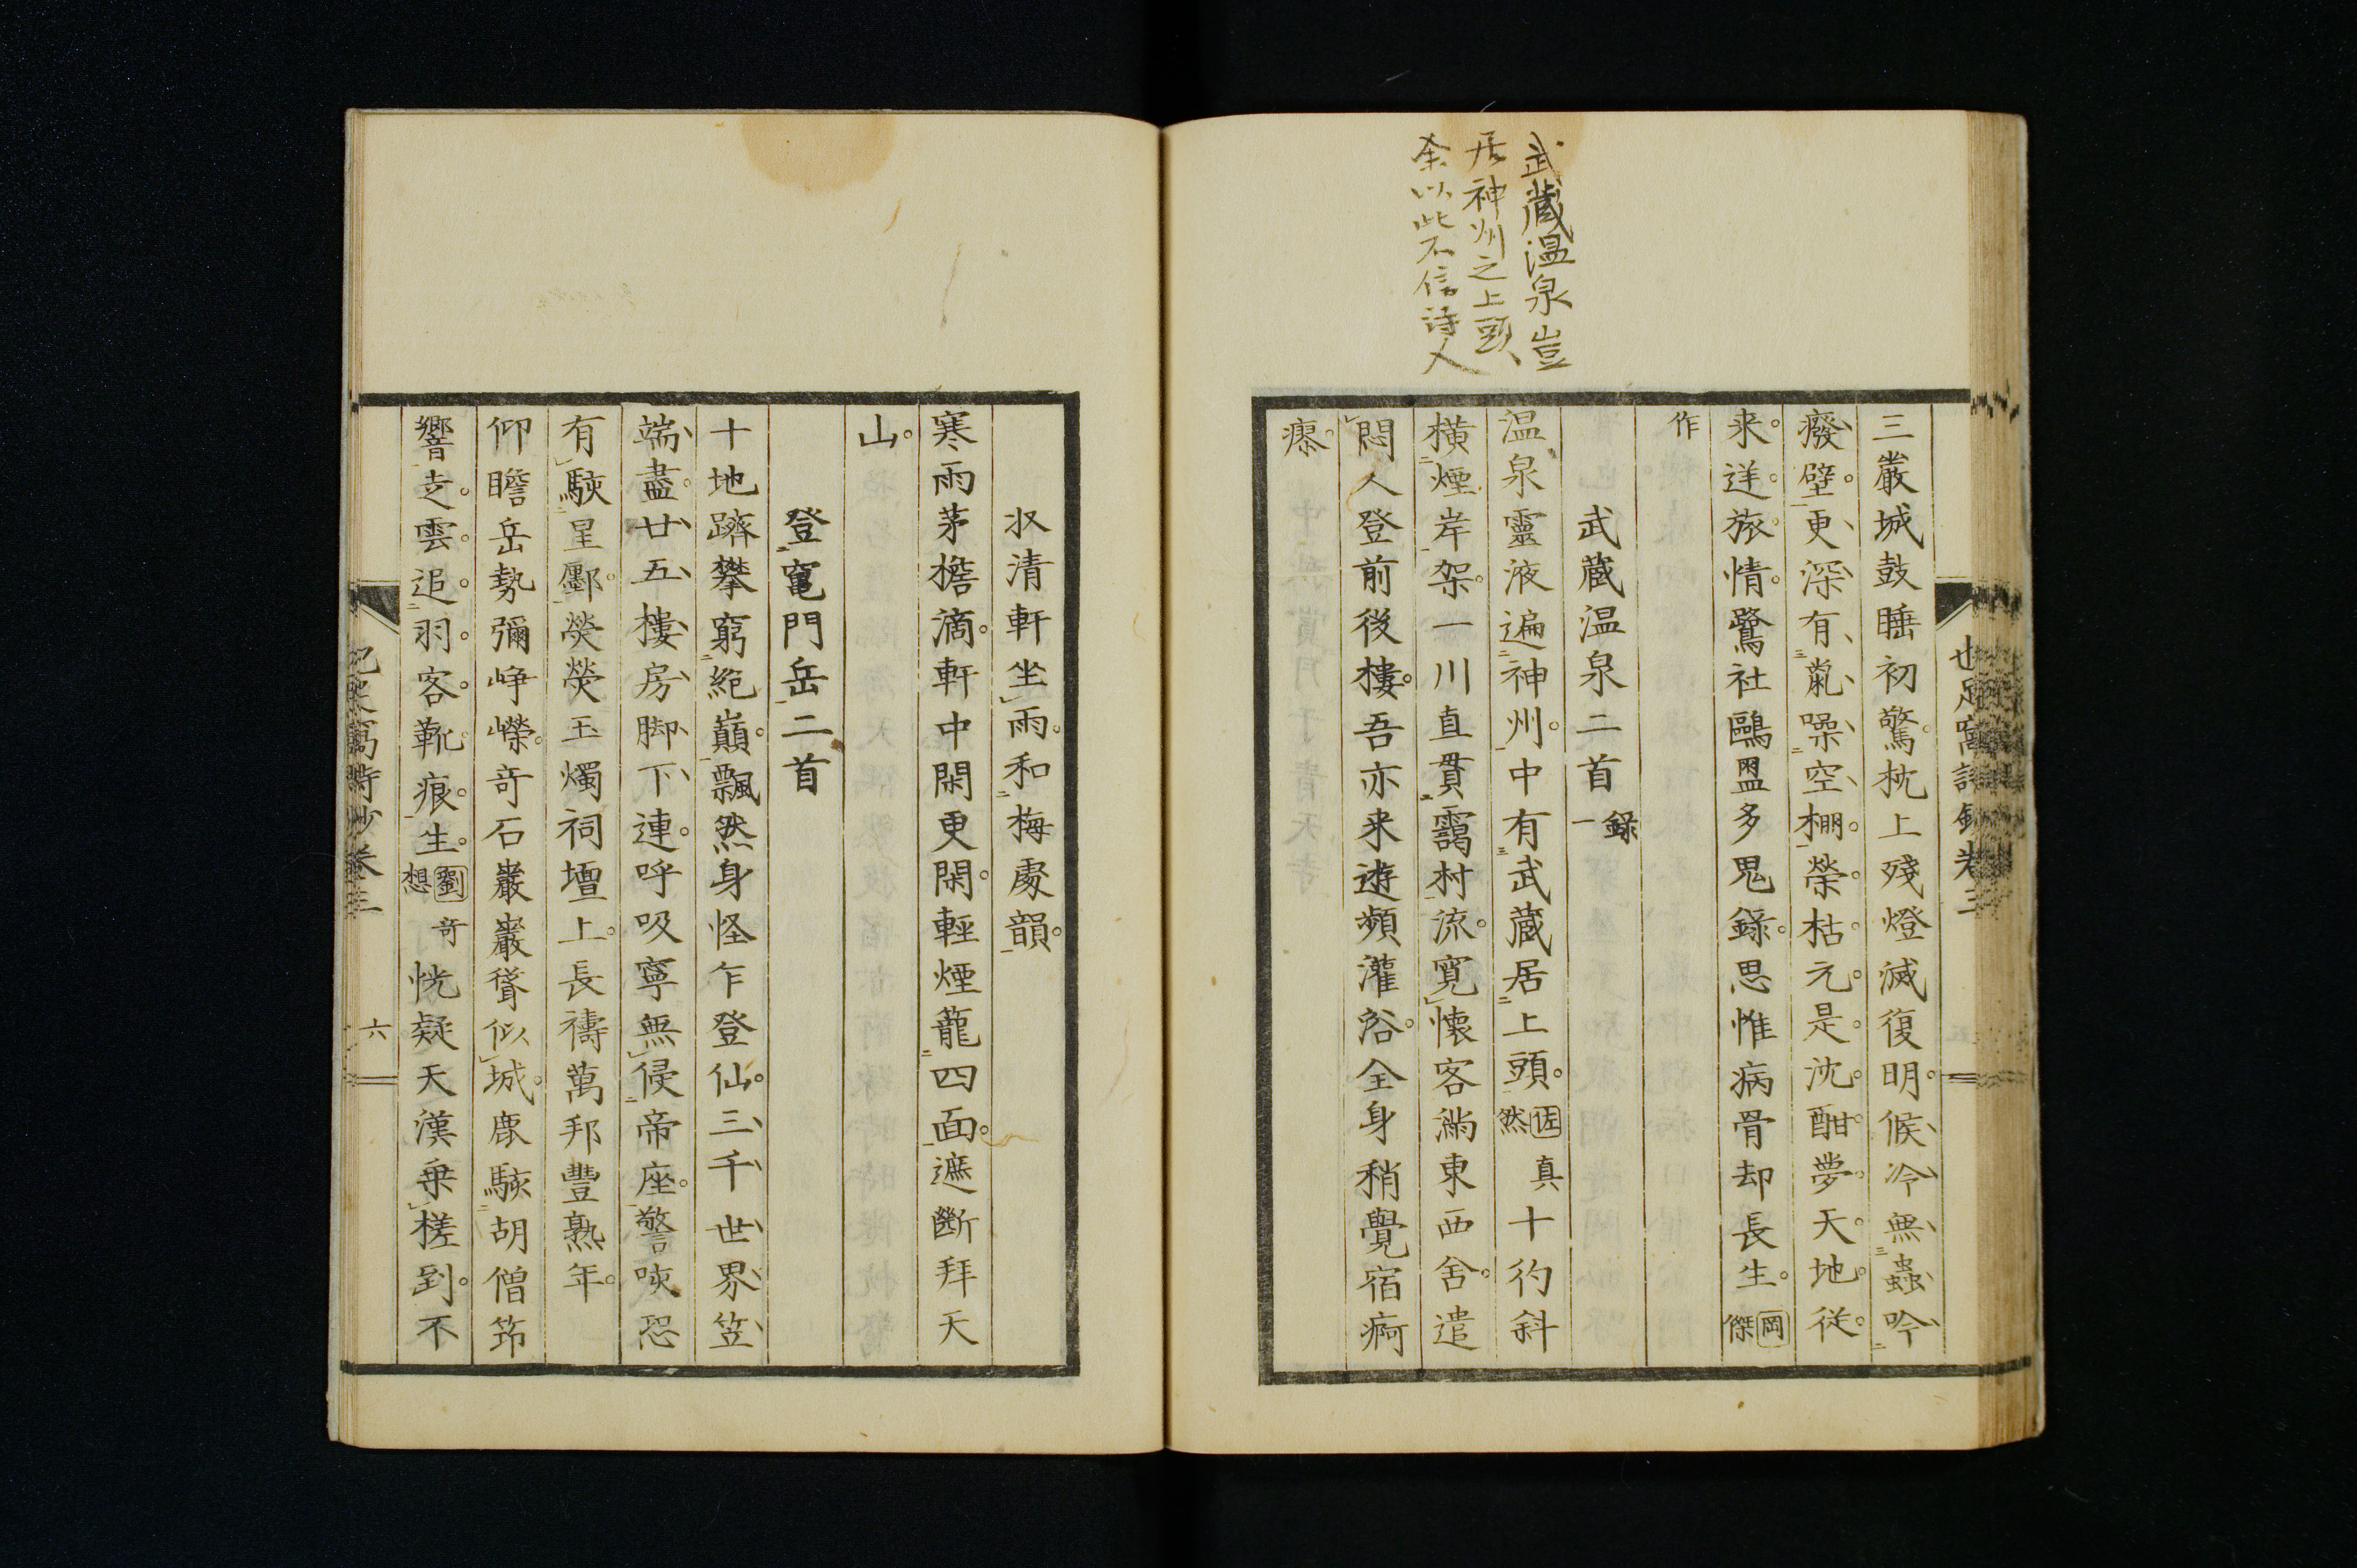 武蔵温泉豈
居神州之上頭
余以此不信詩人
三巖城鼓睡初驚枕上殘燈滅復明候冷無蟲吟
癈壁更深有䑕噪空棚榮枯元是沈酣夢天地從
來逆旅情鷺社鷗盟多鬼錄思惟病骨却長生岡傑
作
武蔵温泉二首錄一
温泉靈液遍神州中有武蔵居上頭佐真然十彴斜
橫煙岸架一川直貫靄村流寬懷客滿東西舍遣
悶人登前後樓吾亦来遊頻灌浴全身稍覺宿痾
瘳
卷三
収清軒坐雨和梅處韻
寒雨茅檐滴軒中閑更閑輕煙籠四面遮斷拜天
山
登竃門岳二首
十地躋攀窮絶巔飄然身怪乍登仙三千世界笠
端盡廿五樓房脚下連呼吸寧無侵帝座警咳恐
有駭星躔熒熒玉燭祠壇上長禱萬邦豐熟年
仰瞻岳勢彌崢嶸奇石巖巖聳似城鹿駭胡僧笻
響走雲追羽客靴痕生劉奇想恍疑天漢乗槎到不
萬詩鈔卷三
六